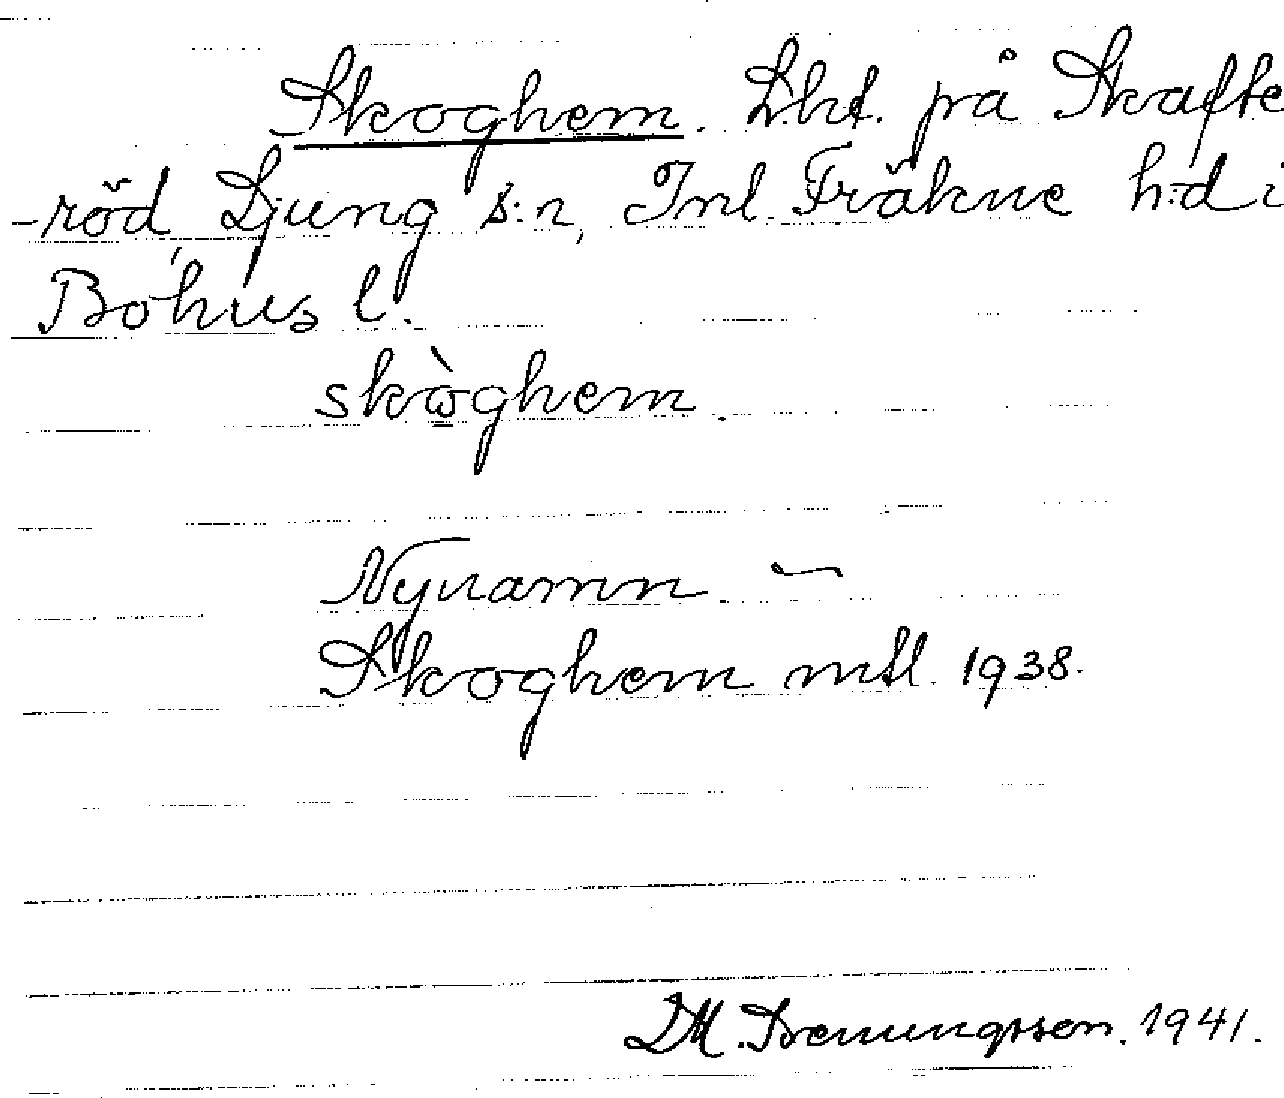 Skoghem. Lht. på Skafte
-röd, Ljung s:n, Inl. Fräkne h:d i
Bohus l.
skòghem.
Nynamn —
Skoghem mtl. 1938.
1941.